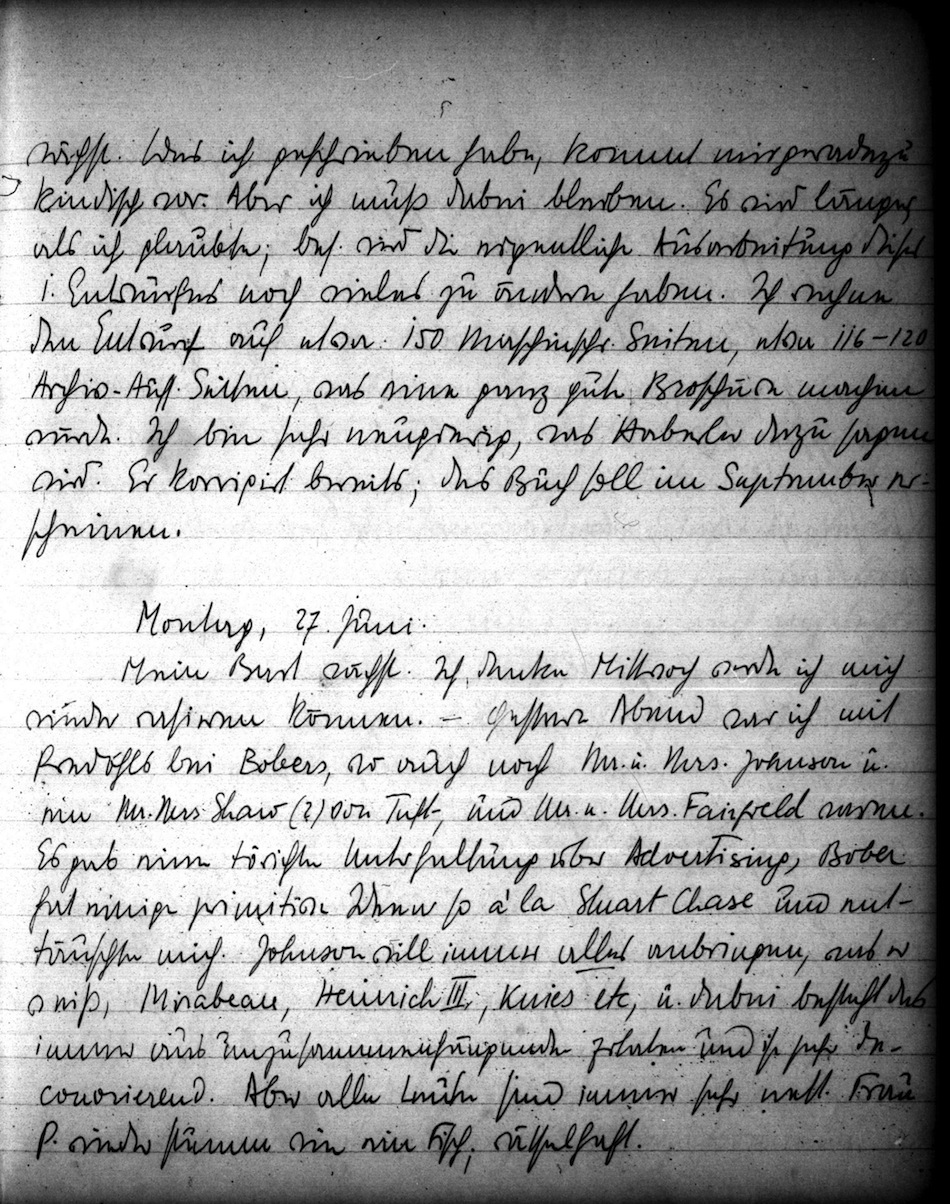 wächst. Was ich geschrieben habe, kommt mir geradezu
kindisch vor. Aber ich muß dabei bleiben. Es wird länger
als ich glaubte; bes. wird die eigentliche Ausarbeitung dieses
1. Entwurfes noch vieles zu ändern haben. Ich rechne
den Entwurf auf etwa 150 Maschinschr. Seiten, etwa 116–120
Archiv-Aufs. Seiten, was eine ganz gute Broschüre machen
würde. Ich bin sehr neugierig, was Haberler dazu sagen
wird. Er korrigiert bereits; das Buch soll im September er-
scheinen.
Montag, 27. Juni.
Mein Bart wächst. Ich denke Mittwoch werde ich mich
wieder rasieren können. – Gestern Abend war ich mit
bei Bobers, wo auch noch Mr. u. Mrs. Johnson u.
ein Mr. Mrs Shaw (?) von Tuft, und Mr. u. Mrs. Fairfield waren.
Es gab eine törichte Unterhaltung über Advertising, Bober
hat einige primitive Ideen so à la Stuart Chase und ent-
täuschte mich. Johnson will immer alles anbringen, was er
weiß, Mirabeau, Heinrich III, Knies etc, u. dabei besteht das
immer aus unzusammenhängenden und ist sehr de-
couvrierend. Aber alle Leute sind immer sehr nett. Frau
P. wieder stumm wie ein Fisch; rätselhaft.